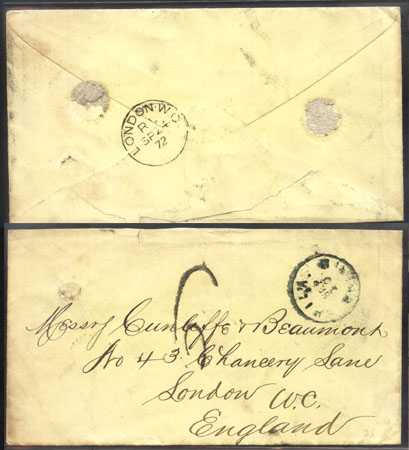 LONDON · W.C
R L
SP 24
72
6
Messrs Cunliffe & Beaumont
No 43 Chancery Lane
London W.C.
England